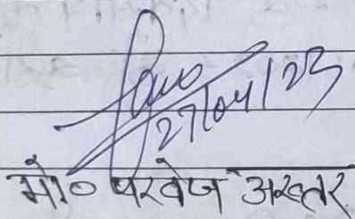 27/04/23
मो० परवेज अख्तर